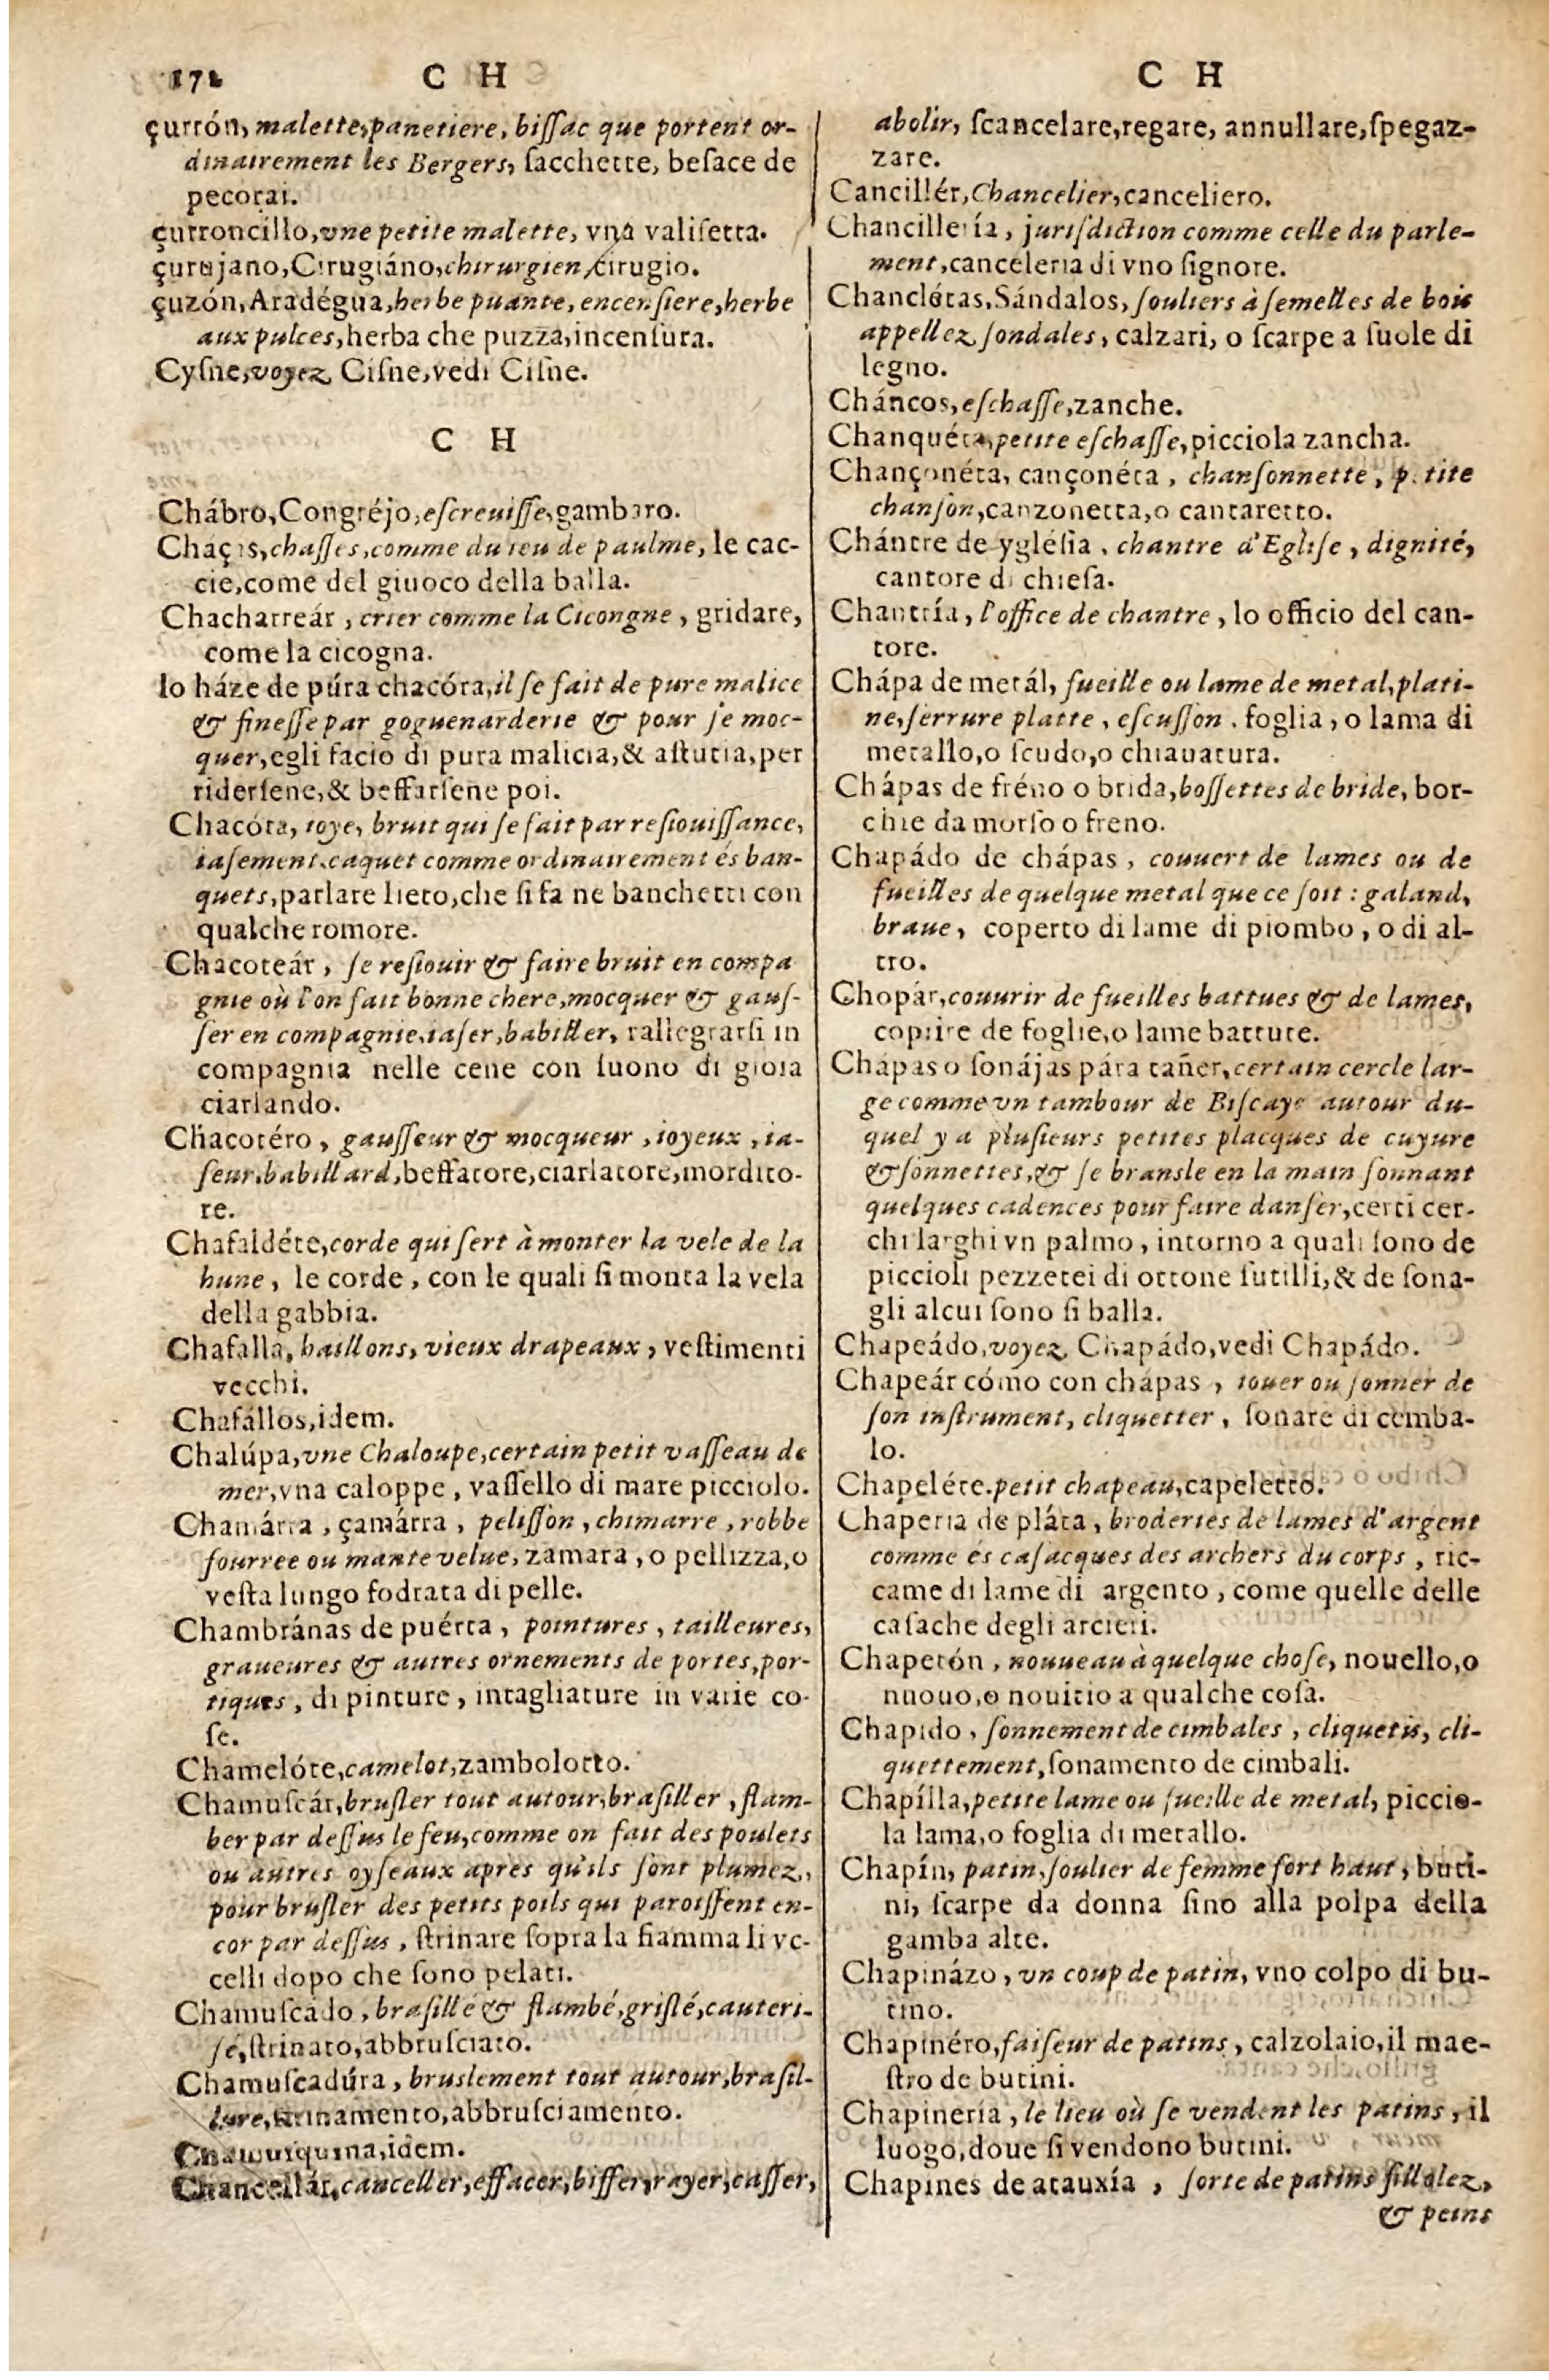 172 C H
çurrón, malette, panetiere, bissac que portent or-
dinairement les Bergers, sacchette, besace de
pecorai.
çurroncillo, vne petite malette, vna valisetta.
çurujano, Cirugiáno, chirurgien, cirugio.
çuzón, Aradégua, herbe puante, encensiere, herbe
aux pulces, herba che puzza, incensura.
Cysne, voyez Cisne, vedi Cisne.
C H
Chábro, Congréjo, escreuisse, gambaro.
Chaças, chasses, comme du ieu de paulme, le cac-
cie, come del giuoco della balla.
Chacharreár, crier comme la Cicongne, gridare,
come la cicogna.
lo háze de púra chacóra, il se fait de pure malice
& finesse par goguenarderie & pour se moc-
quer, egli facio di pura malicia, & astutia, per
ridersene, & beffarsene poi.
Chacóta, ioye, bruit qui se fait par resiouissance,
iasement, caquet comme ordinairement és ban-
quets, parlare lieto, che si fa ne banchetti con
qualche romore.
Chacoteár, se resiouir & faire bruit en compa
gnie où l'on fait bonne chere, mocquer & gaus-
ser en compagnie, iaser, babiller, rallegrarsi in
compagnia nelle cene con suono di gioia
ciarlando.
Chacotéro, gausseur & mocqueur, ioyeux, ia-
seur, babillard, beffatore, ciarlatore, mordito-
re.
Chafaldéte, corde qui sert à monter la vele de la
hune, le corde, con le quali si monta la vela
della gabbia.
Chafalla, haillons, vieux drapeaux, vestimenti
vecchi.
Chafállos, idem.
Chalúpa, vne Chaloupe, certain petit vasseau de
mer, vna caloppe, vassello di mare picciolo.
Chamárra, çamárra, pelisson, chimarre, robbe
fourree ou mante velue, zamara, o pellizza, o
vesta lungo fodrata di pelle.
Chambránas de puérta, pointures, tailleures,
graueures & autres ornements de portes, por-
tiques, di pinture, intagliature in varie co-
se.
Chamelóte, camelot, zambolotto.
Chamuscár, brusler tout autour, brasiller, flam-
ber par dessus le feu, comme on fait des poulets
ou autres oyseaux apres qu'ils sont plumez,
pour brusler des petits poils qui paroissent en-
cor par dessus, strinare sopra la fiamma li vc-
celli dopo che sono pelati.
Chamuscádo, brasillé & flambé, grislé, cauteri-
sé, strinato, abbrusciato.
Chamuscadúra, bruslement tout autour, brasil-
lure, strinamento, abbrusciamento.
Chamuiquina, idem.
Chancellár, canceller, effacer, biffer, rayer, casser,
C H
abolir, scancelare, regare, annullare, spegaz-
zare.
Cancillér, Chancelier, canceliero.
Chancillería, jurisdiction comme celle du parle-
ment, canceleria di vno signore.
Chanclétas, Sándalos, souliers à semelles de bois
appellez sondales, calzari, o scarpe a suole di
legno.
Cháncos, eschasse, zanche.
Chanquéta, petite eschasse, picciola zancha.
Chançonéta, cançonéta, chansonnette, petite
chanson, canzonetta, o cantaretto.
Chántre de yglésia, chantre d'Eglise, dignité,
cantore di chiesa.
Chantría, l'office de chantre, lo officio del can-
tore.
Chápa de metál, fueille ou lame de metal, plati-
ne, serrure platte, escusson, foglia, o lama di
metallo, o scudo, o chiauatura.
Chápas de fréno o brida, bossettes de bride, bor-
chie da morso o freno.
Chapádo de chápas, couuert de lames ou de
fueilles de quelque metal que ce soit : galand,
braue, coperto di lame di piombo, o di al-
tro.
Chopár, couurir de fueilles battues & de lames,
coprire de foglie, o lame battute.
Chápas o sonájas pára tañer, certain cercle lar-
ge comme vn tambour de Biscaye autour du-
quel y a plusieurs petites placques de cuyure
& sonnettes, & se bransle en la main sonnant
quelques cadences pour faire danser, certi cer-
chi larghi vn palmo, intorno a quali sono de
piccioli pezzetei di ottone sutilli, & de sona-
gli alcui sono si balla.
Chapeádo, voyez Chapádo, vedi Chapádo.
Chapeár cómo con chápas, iouer ou sonner de
son instrument, cliquetter, sonare di cemba-
lo.
Chapeléte. petit chapeau, capeletto.
Chaperia de pláta, broderies de lames d'argent
comme es casacques des archers du corps, ric-
came di lame di argento, come quelle delle
casache degli arcieri.
Chapetón, nouueau à quelque chose, nouello, o
nuouo, o nouitio a qualche cosa.
Chapido, sonnement de cimbales, cliquetis, cli-
quettement, sonamento de cimbali.
Chapílla, petite lame ou fueille de metal, piccio-
la lama, o foglia di metallo.
Chapín, patin, soulier de femme fort haut, buti-
ni, scarpe da donna sino alla polpa della
gamba alte.
Chapinázo, vn coup de patin, vno colpo di bu-
tino.
Chapinéro, faiseur de patins, calzolaio, il mae-
stro de butini.
Chapinería, le lieu où se vendent les patins, il
luogo, doue si vendono butini.
Chapines de atauxía, sorte de patins sillolez,
& peins